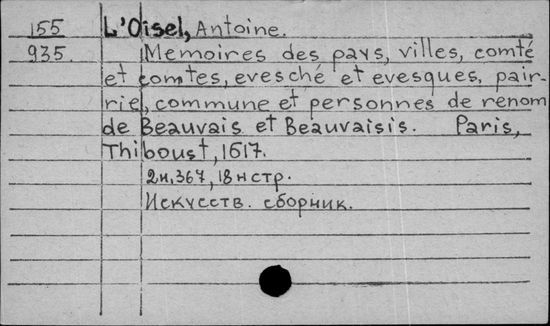 155 L'Oisel, Antoine.
935. Memoires des pays, villes, comté
et comtes, evesché et evesques, pair-
rie, commune et personnes de renom
de Beauvais et Beauvaisis. Paris,
Thiboust, 1617.
2н, 367, 18н стр.
Искусств. сборник.